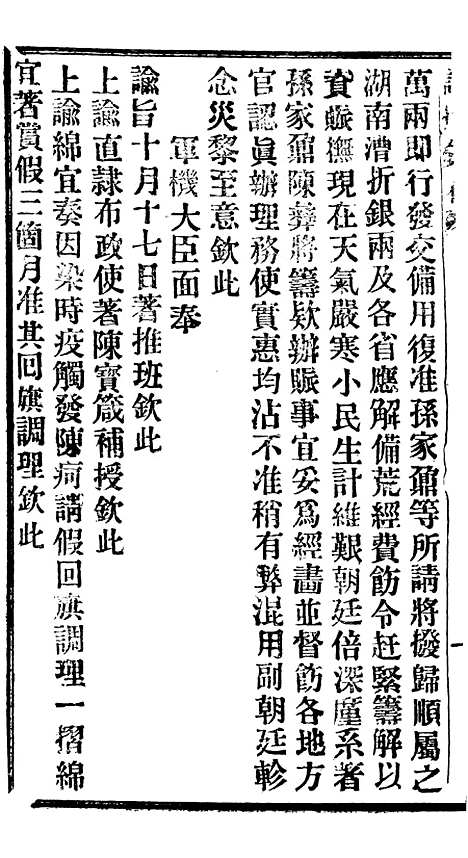 萬兩即行發交備用復准孫家鼐等所請將撥歸順屬之
湖南漕折銀兩及各省應解備荒經費飭令赶緊籌解以
資賑撫現在天氣嚴寒小民生計維艱朝廷倍深廑系著
孫家鼐陳彝將籌欵辦賑事宜妥爲經畫並督飭各地方
官認眞辦理務使實惠均沾不准稍有弊混用副朝廷軫
念災黎至意欽此
軍機大臣面奉
諭旨十月十七日著推班欽此
上諭直隸布政使著陳寶箴補授欽此
上諭綿宜奏因染時疫觸發陳疴請假回旗調理一摺綿
宜著賞假三箇月准其回旗調理欽此